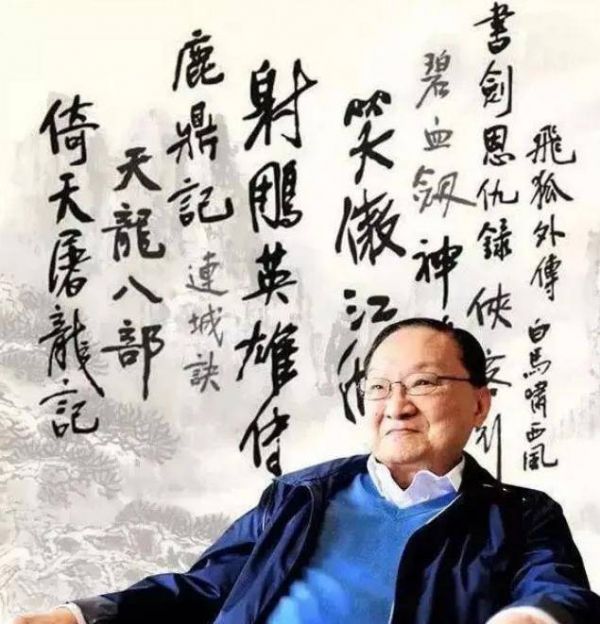 飛狐外傳
白馬嘯西風
書劍恩仇錄
俠客行
碧血劍
神
笑傲江湖
射鵰英雄传
鹿鼎記
連城訣
天龍八部
倚天屠龍記